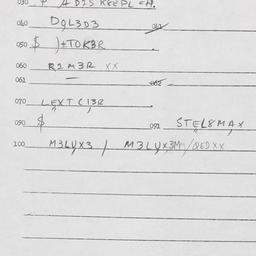 030
040 DQL3D3 041
050 $ )+TOKBR .
060 R2M3R XX
061 062
070 LEXTC13R
090 $ 091 STEL8MAX
100 M3LYX3 / M3LYX3M/QEDXX